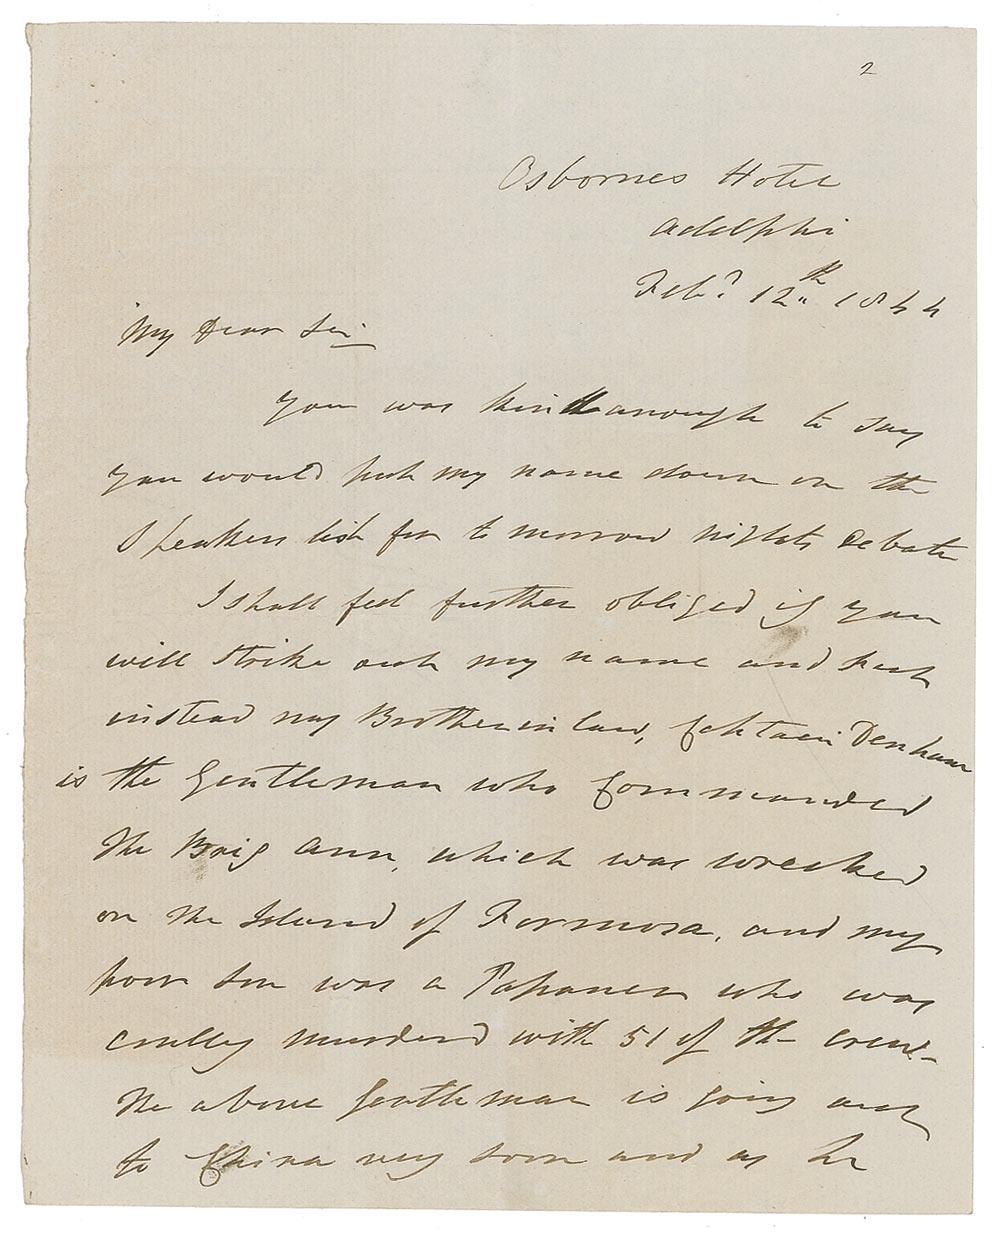 2
Osbornes Hotel
Adelphi
Feby 12th 1844
My Dear Sir
you was kind anough to say
you would put my name down on the
Speakers list for to morrow nights debate
I shall feel further obliged if you
will strike out my name and put
instead my Brother in law, Captain Denham
is the Gentleman who Commanded
the Brig Ann, which was wrecked
on the Island of Formosa, and my
poor son was a Passenger who was
cruelly murdered with 51 of the crew-
the above Gentleman is going out
to China very soon and as he